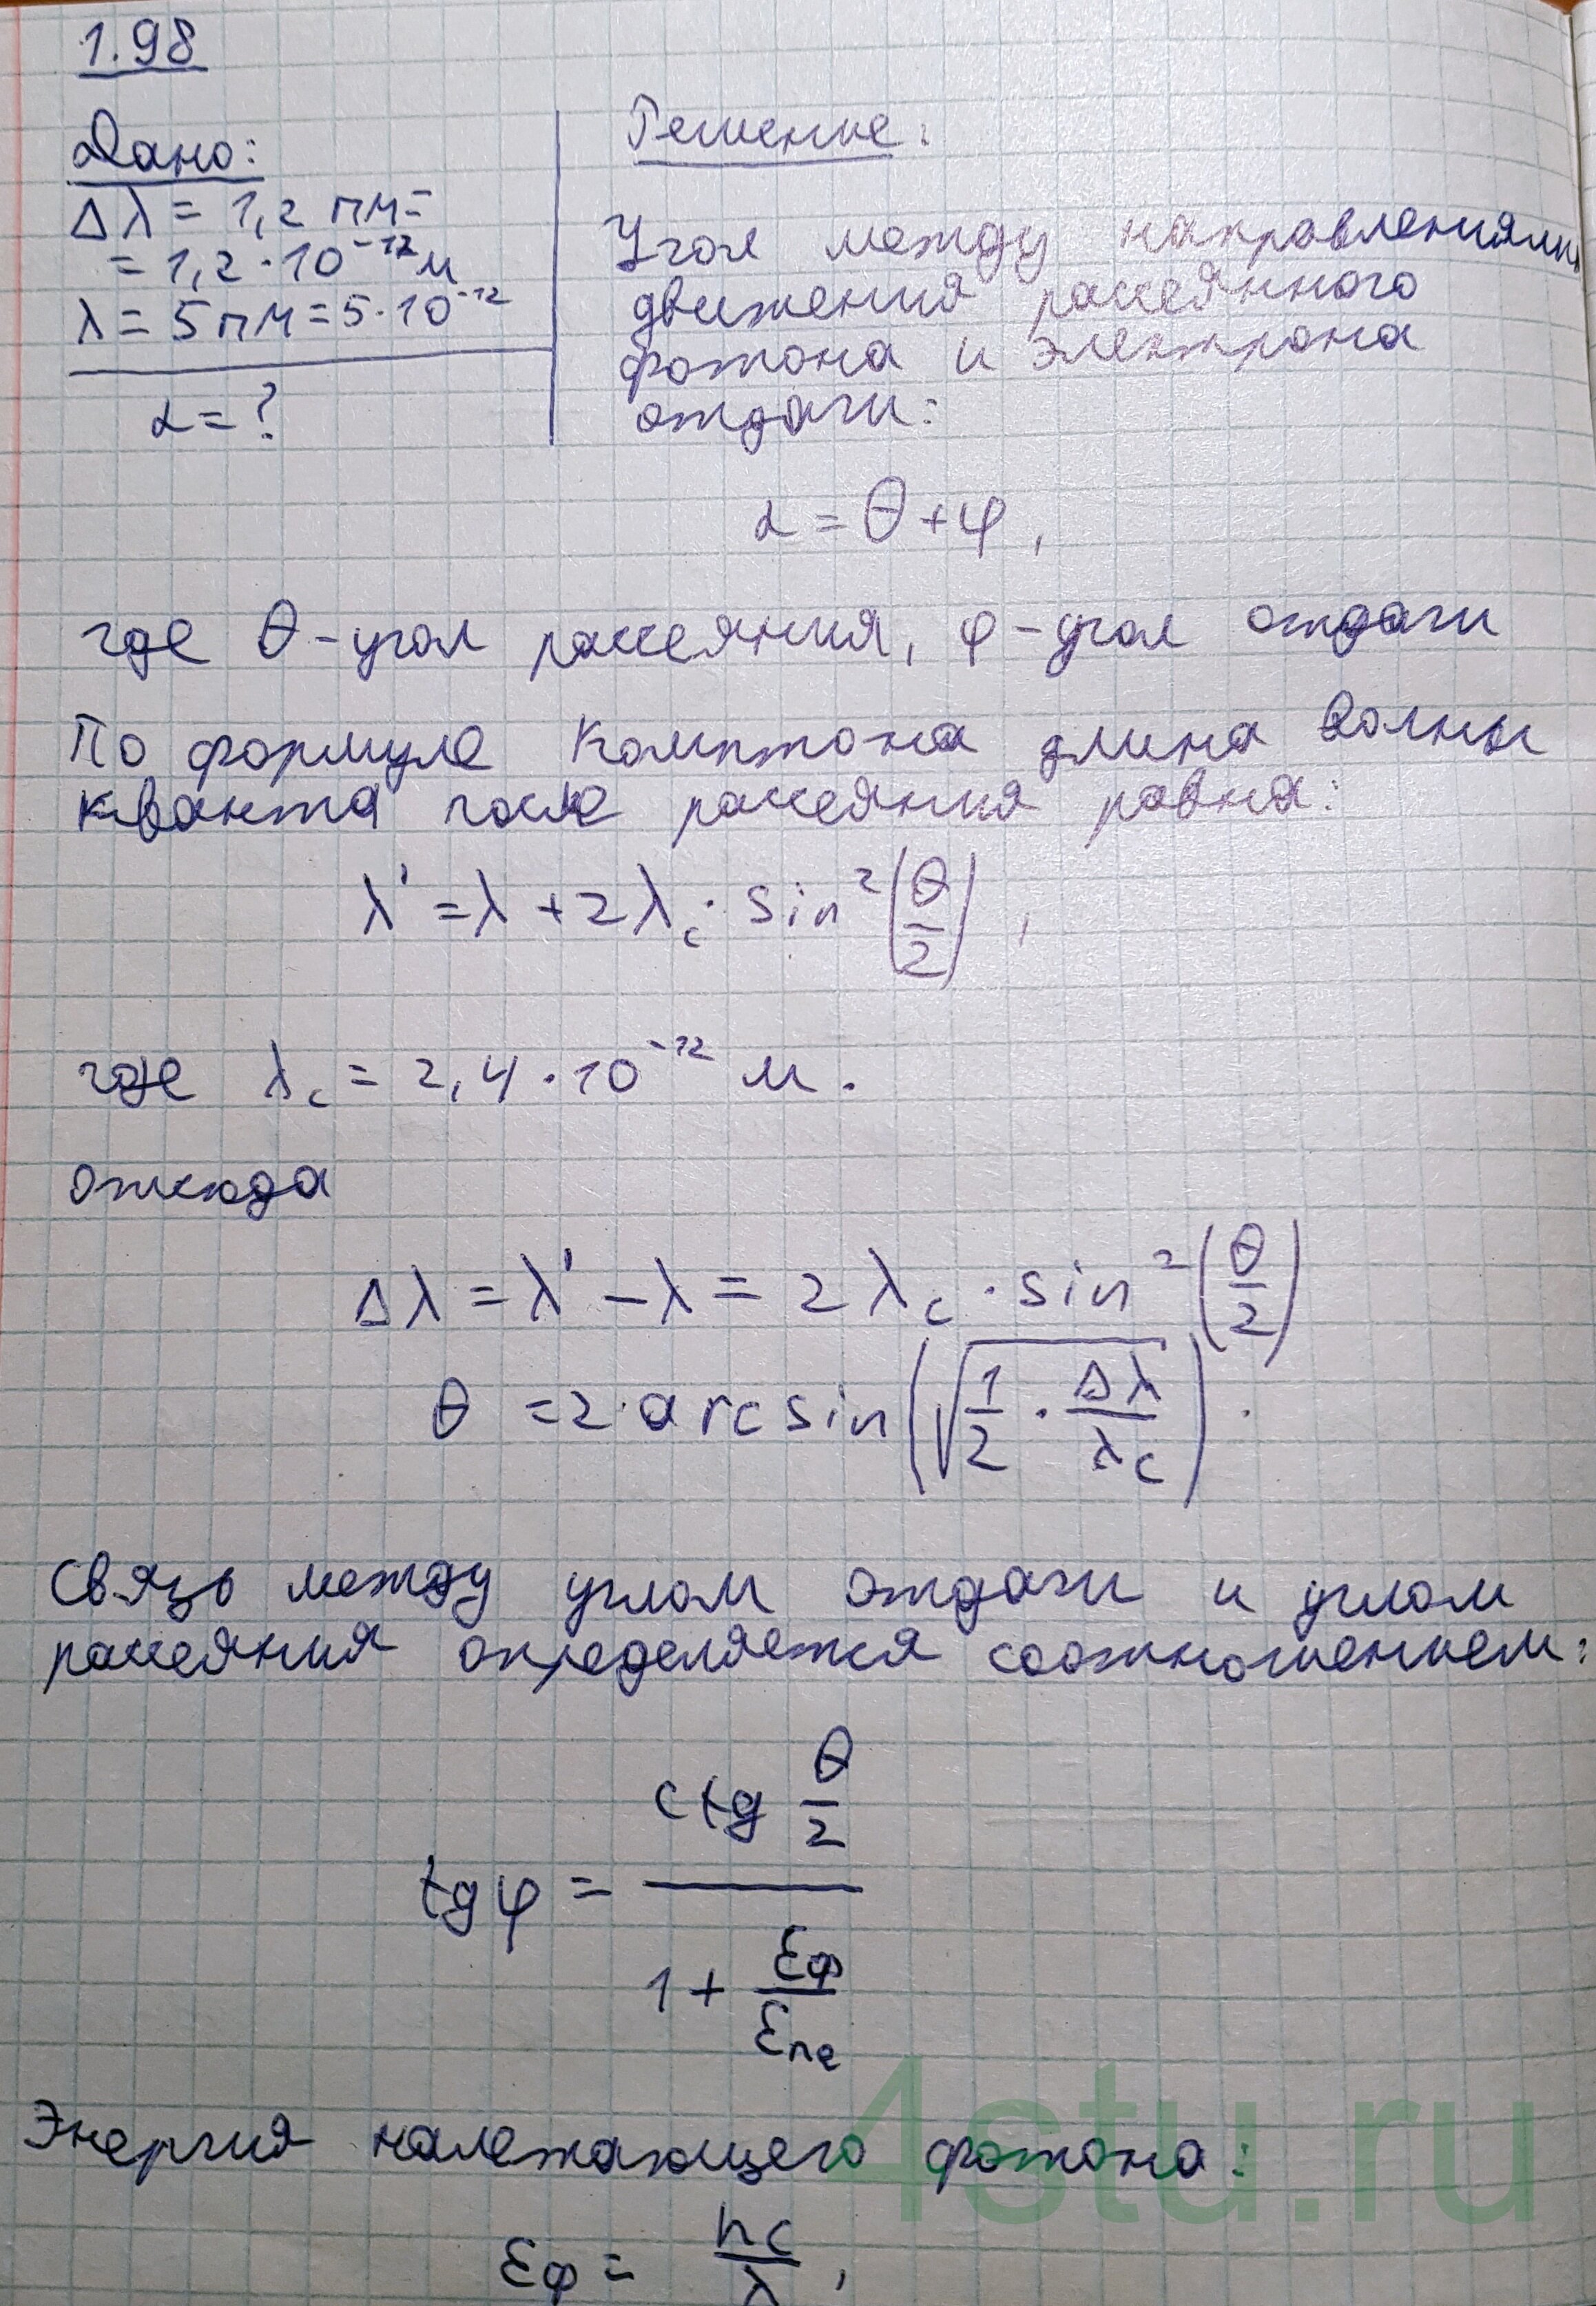 1.98
Дано:
Δλ = 1,2 пм =
= 1,2 · 10⁻¹² м
λ = 5 пм = 5 · 10⁻¹²
α = ?
Решение:
Угол между направлениями
движения рассеянного
фотона и электрона
отдачи:
α = θ + φ,
где θ - угол рассеяния, φ - угол отдачи
По формуле Комптона длина волны
кванта после рассеяния равна:
λ' = λ + 2λc · sin²(θ/2),
где λc = 2,4 · 10⁻¹² м.
откуда
Δλ = λ' − λ = 2λc · sin²(θ/2)
θ = 2 · arcsin(√(1/2 · Δλ/λc)).
Связь между углом отдачи и углом
рассеяния определяется соотношением:
tg φ = ctg θ/2 / (1 + εф/εпе)
Энергия налетающего фотона:
εф = hc/λ,
4stu.ru